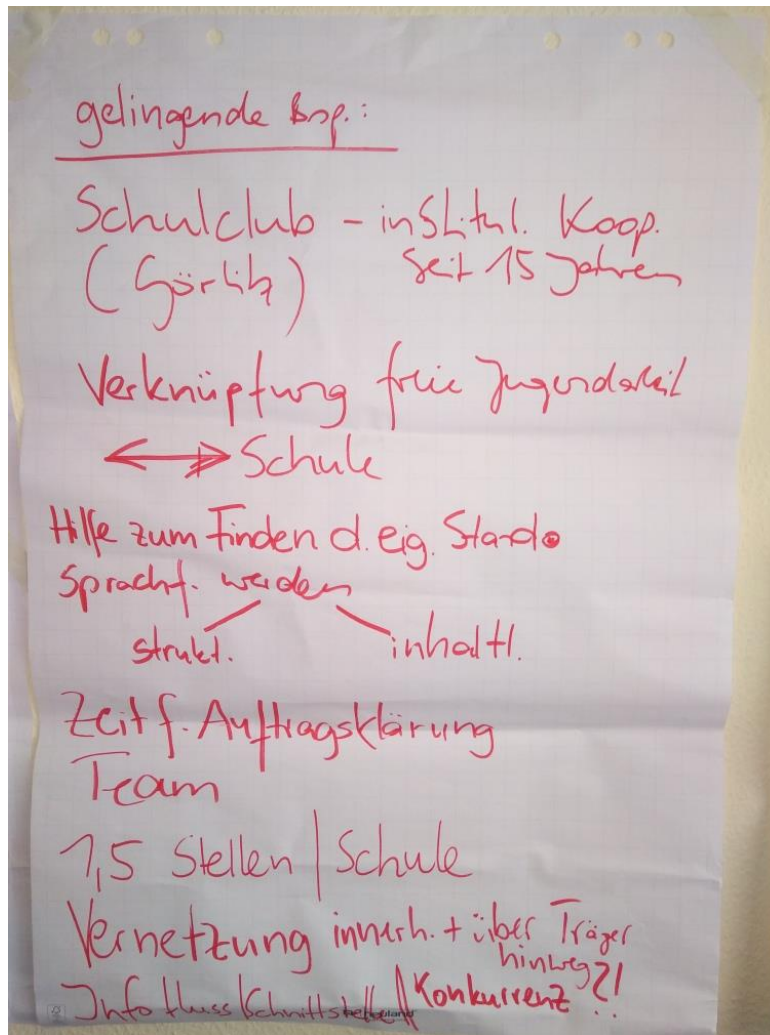 gelingende Bsp.:
Schulclub - institul. Koop.
(Görlitz) seit 15 Jahren
Verknüpfung freie Jugendarbeit
<-> Schule
Hilfe zum Finden d. eig. Stand.
Sprachf. werden
strukt. inhaltl.
Zeit f. Auftragsklärung
Team
1,5 Stellen | Schule
Vernetzung innerh. + über Träger
hinweg?!
Infofluss Schnittstelle // Konkurrenz